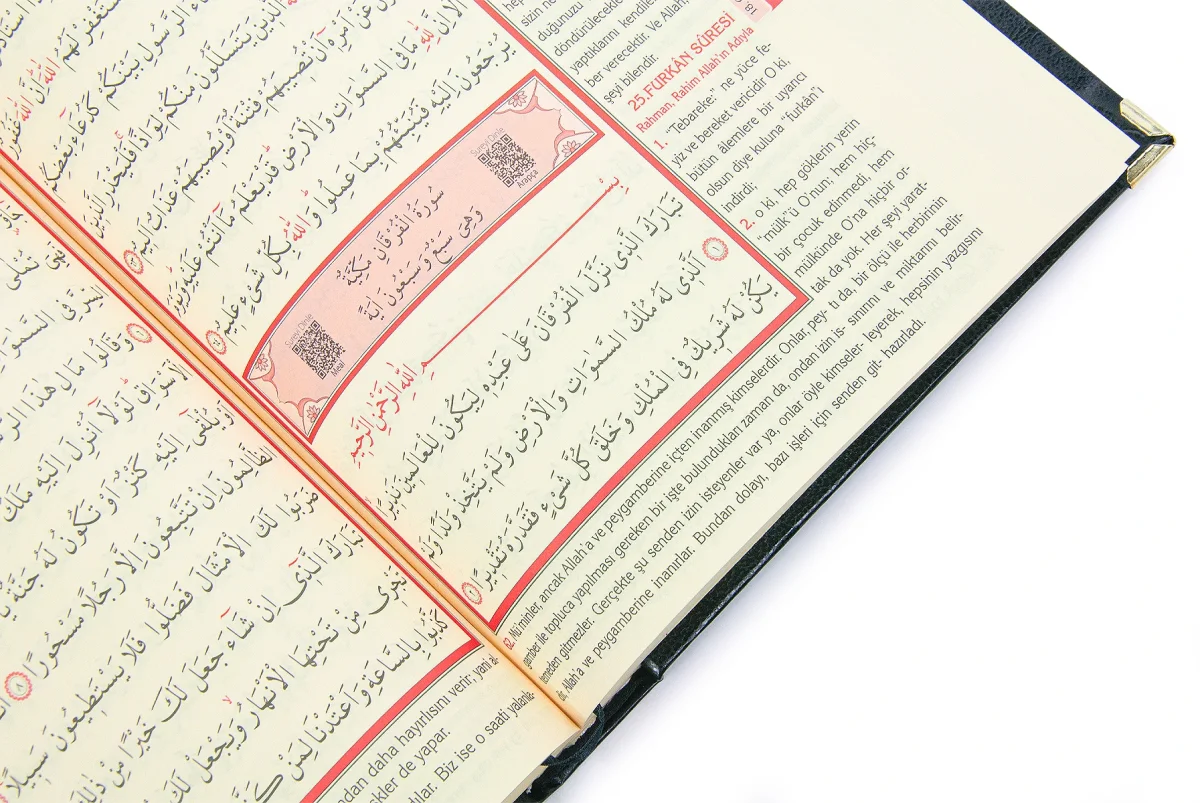 يَسْتَغْفِرْ لَهُمُ اللّٰهَ اِنَّ اللّٰهَ غَفُورٌ
الرَّسُولِ بَيْنَكُمْ كَدُعَٓاءِ بَعْضِكُمْ
الَّذ۪ينَ يَتَسَلَّلُونَ مِنْكُمْ لِوَاذًاۚ فَلْيَحْذَرِ الَّذ۪ينَ
عَنْ اَمْرِه۪ٓ اَنْ تُص۪يبَهُمْ فِتْنَةٌ اَوْ يُص۪يبَهُمْ عَذَابٌ اَل۪يمٌ ٦٣
اَلَٓا اِنَّ لِلّٰهِ مَا فِي السَّمٰوَاتِ وَالْاَرْضِ قَدْ يَعْلَمُ مَٓا اَنْتُمْ عَلَيْهِ وَيَوْمَ
يُرْجَعُونَ اِلَيْهِ فَيُنَبِّئُهُمْ بِمَا عَمِلُوا وَاللّٰهُ بِكُلِّ شَيْءٍ عَل۪يمٌ ٦٤
Sureyi Dinle
Arapça
سُورَةُ الْفُرْقَانِ مَكِّيَّةٌ
وَهِيَ سَبْعٌ وَسَبْعُونَ اٰيَةً
Sureyi Dinle
Meal
بِسْمِ اللّٰهِ الرَّحْمٰنِ الرَّح۪يمِ
تَبَارَكَ الَّذ۪ي نَزَّلَ الْفُرْقَانَ عَلٰى عَبْدِه۪ لِيَكُونَ لِلْعَالَم۪ينَ نَذ۪يرًا
١ اَلَّذ۪ي لَهُ مُلْكُ السَّمٰوَاتِ وَالْاَرْضِ وَلَمْ يَتَّخِذْ وَلَدًا وَلَمْ
يَكُنْ لَهُ شَر۪يكٌ فِي الْمُلْكِ وَخَلَقَ كُلَّ شَيْءٍ فَقَدَّرَهُ تَقْد۪يرًا ٢
sizin ne
duğunuzu
döndürülecekle
yaptıklarını kendiler
ber verecektir. Ve Allah,
şeyi bilendir.
18
25.FURKÂN SÛRESİ
Rahman, Rahim Allah'ın Adıyla
1. "Tebareke:" ne yüce fe-
yiz ve bereket vericidir O ki,
bütün âlemlere bir uyarıcı
olsun diye kuluna "furkân"ı
indirdi;
2. o ki, hep göklerin yerin
"mülk"ü O'nun; hem hiç-
bir çocuk edinmedi, hem
mülkünde O'na hiçbir or-
tak da yok. Her şeyi yarat-
tı da, bir ölçü ile herbirinin
sınırını ve miktarını belir-
leyerek, hepsinin yazgısını
hazırladı.
62. Mü'minler, ancak Allah'a ve peygamberine içten inanmış kimselerdir. Onlar, pey-
gamber ile topluca yapılması gereken bir işte bulundukları zaman da, ondan izin is-
temeden gitmezler. Gerçekte şu senden izin isteyenler var ya, onlar öyle kimseler-
dir, Allah'a ve peygamberine inanırlar. Bundan dolayı, bazı işleri için senden git-
وَقَالُوا مَالِ هٰذَا الرَّ
لَوْلَٓا اُنْزِلَ اِلَيْهِ مَلَكٌ
اَوْ يُلْقٰٓى اِلَيْهِ كَنْزٌ اَوْ تَكُونُ لَهُ جَنَّةٌ
الظَّالِمُونَ اِنْ تَتَّبِعُونَ اِلَّا رَجُلًا مَسْحُورًا ٨
ضَرَبُوا لَكَ الْاَمْثَالَ فَضَلُّوا فَلَا يَسْتَط۪يعُونَ سَب۪يلًا
تَبَارَكَ الَّذ۪ٓي اِنْ شَٓاءَ جَعَلَ لَكَ خَيْرًا مِنْ ذٰلِكَ
تَجْر۪ي مِنْ تَحْتِهَا الْاَنْهَارُ وَيَجْعَلْ لَكَ
كَذَّبُوا بِالسَّاعَةِ وَاَعْتَدْنَا لِمَنْ كَذَّبَ
ndan daha hayırlısını verir; yani al-
şkler de yapar.
dılar. Biz ise o saati yalanla-